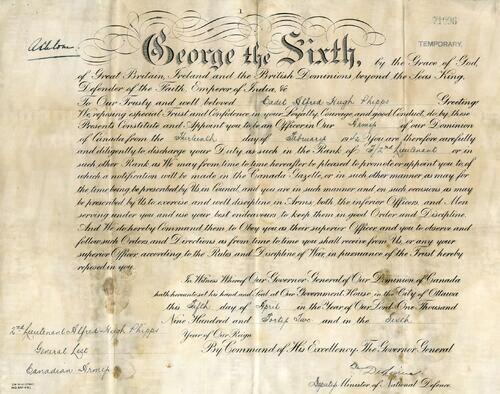 1
21096
TEMPORARY.
Athlone
George the Sixth, by the Grace of God,
of Great Britain, Ireland and the British Dominions beyond the Seas King,
Defender of the Faith, Emperor of India, &c
To Our Trusty and well beloved Cadet Alfred Hugh Phipps Greeting:
We reposing especial Trust and Confidence in your Loyalty, Courage, and good Conduct, do, by these
Presents Constitute and Appoint you to be an Officer in Our Army of our Dominion
of Canada from the day of February 1942 You are therefore carefully
and diligently to discharge your Duty as such in the Rank of 2nd Lieutenant or in
such other Rank as We may from time to time hereafter be pleased to promote or appoint you to, of
which a notification will be made in the Canada Gazette, or in such other manner as may for
the time being be prescribed by Us in Council, and you are in such manner, and on such occasions as may
be prescribed by Us to exercise and well discipline in Arms both the inferior Officers and Men
serving under you and use your best endeavours to keep them in good Order and Discipline.
And We do hereby Command them to Obey you as their superior Officer, and you to observe and
follow such Orders, and Directions as from time to time you shall receive from Us, or any your
superior Officer according to the Rules and Discipline of War, in pursuance of the Trust hereby
reposed in you.
In Witness Whereof Our Governor General of Our Dominion of Canada
hath hereunto set his hand and Seal at Our Government House in the City of Ottawa
this Fifth day of April in the Year of Our Lord One Thousand
Nine Hundred and Forty Two and in the Sixth
Year of Our Reign
By Command of His Excellency The Governor General
2nd Lieutenant Alfred Hugh Phipps
General List
Canadian Army
Deputy Minister of National Defence.